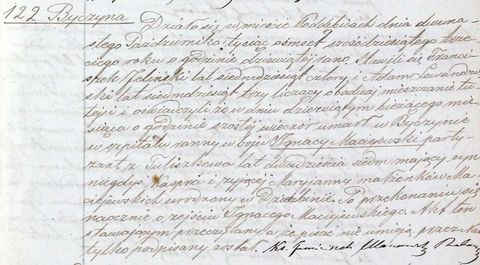 122 Byczyna
Działo się w mieście Poddębicach dnia dwuna-
stego Października tysiąc ośmset sześćdziesiątego trze-
ciego roku o godzinie dziewiątej rano. Stawili się Franci-
szek Jeliński lat siedmdziesiąt cztery i Adam Lewandow-
ski lat siedmdziesiąt trzy liczący obadwaj mieszczanie tu-
tejsi i oświadczyli że w dniu dziewiątym bieżącego mie-
siąca o godzinie szóstej wieczór umarł w Byczynie
w szpitalu ranny w boju Ignacy Maciejewski party-
zant z Tuliszkowa lat dwadzieścia siedm mający syn
niegdyś i żyjącej Maryianny małżonków Ma-
ciejewskich urodzony w. Po przekonaniu się
naocznie o zejściu Ignacego Maciejewskiego. Akt ten
stawającym przeczytany a że pisać nie umieją przez Nas
tylko podpisany został. Ks.